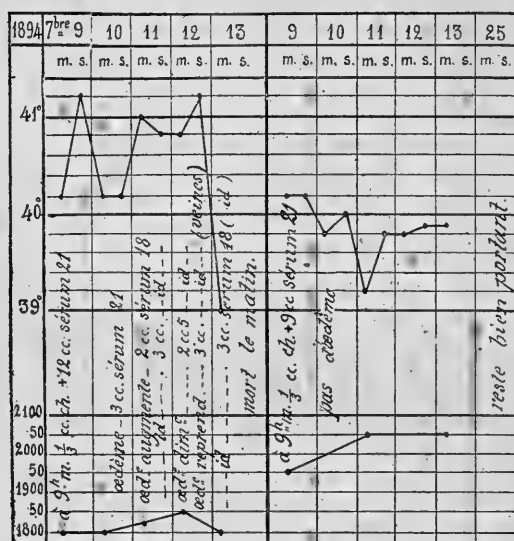 1894 7bre 9 10 11 12 13 9 10 11 12 13 25
m. s. m. s. m. s. m. s. m. s. m. s. m. s. m. s. m. s. m. s.
41°
40°
39°
2100
50
2000
50
1900
50
1800
à 9h m. 1/3 cc. ch. + 12 cc. sérum 21
œdème – 3 cc. sérum 21
œde augmente – 2 cc. sérum 18
id --- 3 cc. --- id ---
œde dime ---- 2 cc5 --- id
œde reprend --- 3 cc. --- id --- (veines)
--- id ------ 3 cc. sérum 18 ( - id - )
mort le matin.
à 9h m. 1/3 cc. ch. + 9 cc sérum 21
pas d'œdème
reste bien portant.